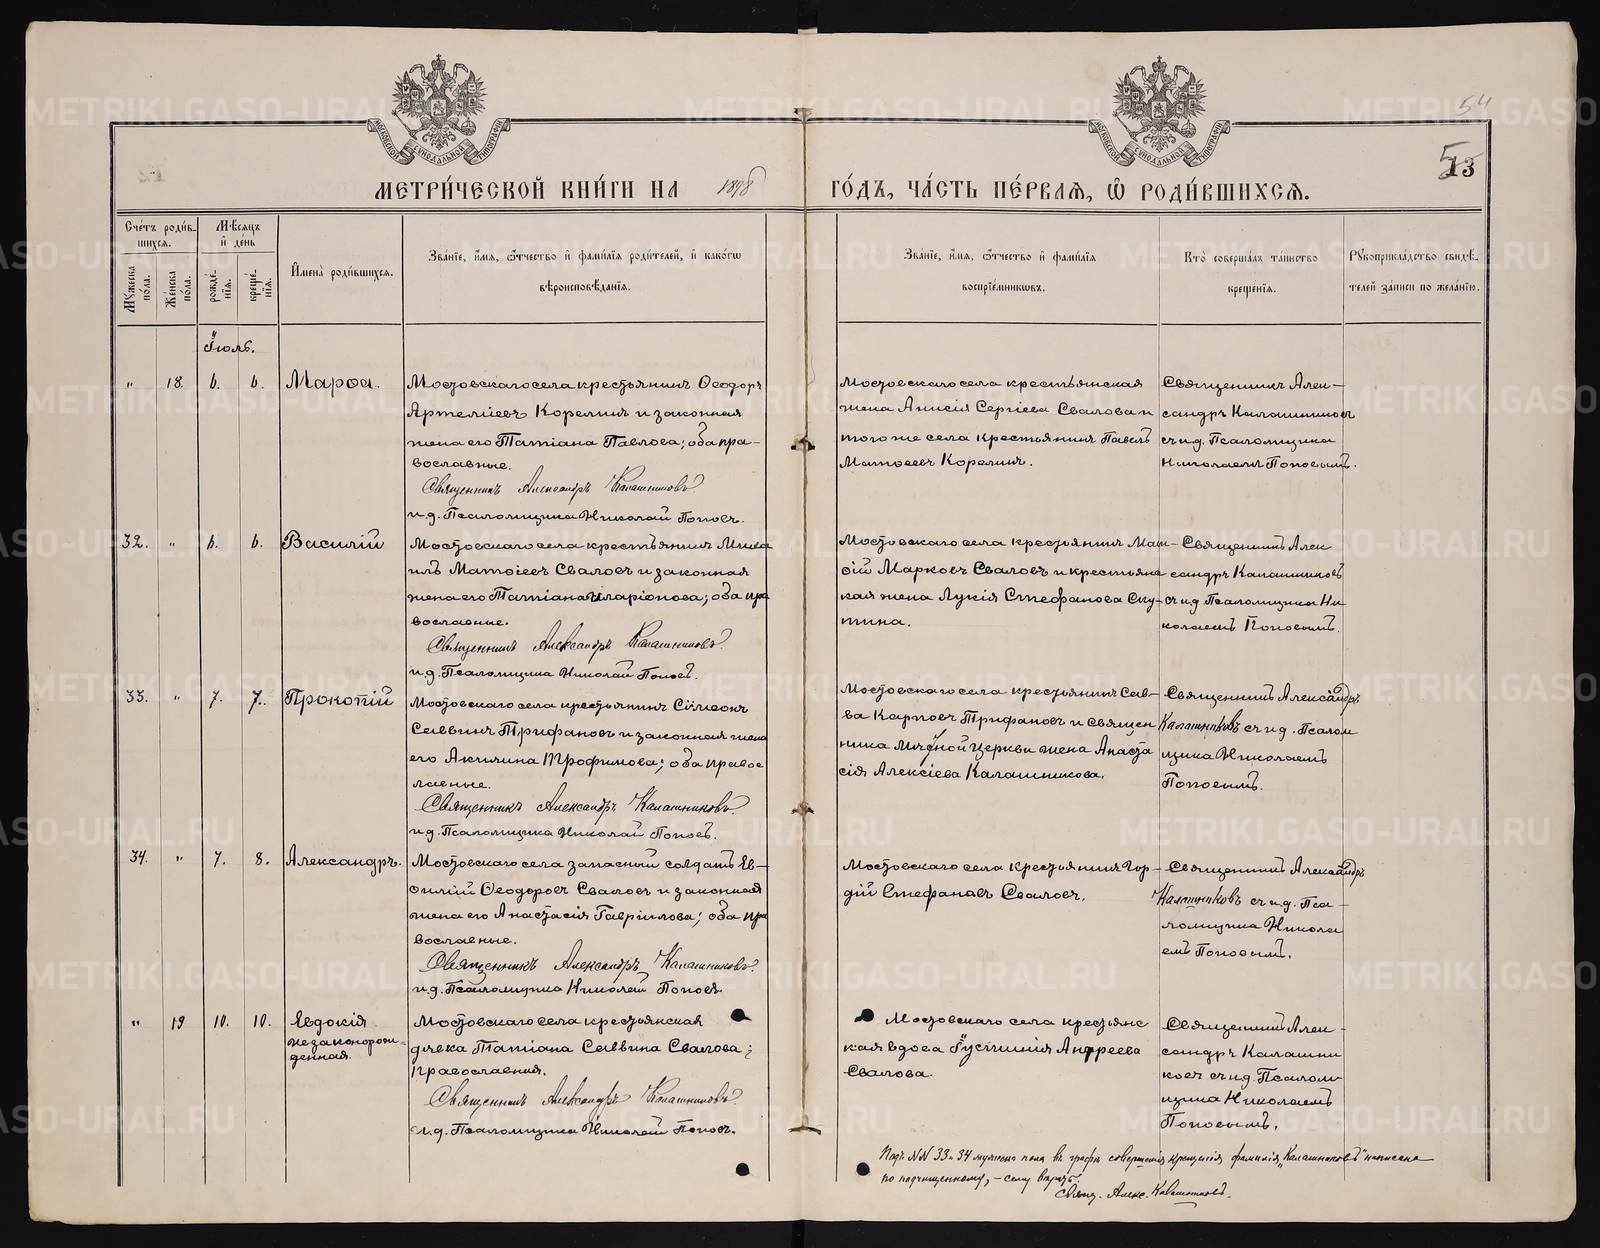 54
13
5
МОСКОВСКОЙ СѴНОДАЛЬНОЙ ТИПОГРАФІИ
МОСКОВСКОЙ СѴНОДАЛЬНОЙ ТИПОГРАФІИ
МЕТРИ́ЧЕСКОЙ КНИ́ГИ НА 1898 ГО́ДЪ, ЧА́СТЬ ПЕ́РВАѦ, Ѡ РОДИ́ВШИХСѦ.
Сче́тъ роди́вшихсѧ.
Мꙋ́жеска по́ла.
Же́нска по́ла.
Мѣ́сѧцъ и҆ де́нь
рожде́нїѧ.
креще́нїѧ.
И҆мена̀ роди́вшихсѧ.
Зва́нїе, и҆́мѧ, ѻ҆́тчество и҆ фами́лїѧ роди́телей, и҆ како́гѡ
вѣроисповѣ́данїѧ.
Зва́нїе, и҆́мѧ, ѻ҆́тчество и҆ фами́лїѧ
воспрїе́мникѡвъ.
Кто̀ соверша́лъ та́инство
креще́нїѧ.
Рꙋкоприкла́дство свидѣ́-
телей за́писи по жела́нїю.
Іюль.
" 18. 6. 6. Марѳа.
Мостовскаго села крестьянинъ Ѳеодоръ
Артемиевъ Корелинъ и законная
жена его Татіана Павлова; оба пра-
вославные.
Священникъ Александръ Калашниковъ
и.д. Псаломщика Николай Поповъ.
Мостовскаго села крестьянская
жена Анисія Сергіева Свалова и
того же села крестьянинъ Павелъ
Матѳеевъ Корелинъ.
Священникъ Алек-
сандръ Калашниковъ
съ и.д. Псаломщика
Николаемъ Поповымъ.
32. " 6. 6. Василій
Мостовскаго села крестьянинъ Миха
илъ Матѳіевъ Сваловъ и законная
жена его Татіана Иларіонова; оба пра
вославные.
Священникъ Александръ Калашниковъ.
и.д. Псаломщика Николай Поповъ.
Мостовскаго села крестьянинъ Мат-
ѳій Марковъ Сваловъ и крестьянс
кая жена Лукія Стефанова Ску-
тина.
Священникъ Алек
сандръ Калашниковъ
съ и.д. Псаломщика Ни
колаемъ Поповымъ.
33. " 7. 7. Прокопій
Мостовскаго села крестьянинъ Сѵмеонъ
Саввинъ Трифановъ и законная жена
его Акилина Трофимова; оба правос
лавные.
Священникъ Александръ Калашниковъ.
и.д. Псаломщика Николай Поповъ.
Мостовскаго села крестьянинъ Сав-
ва Карповъ Трифановъ и священ
ника церкви жена Анаста
сія Алексіева Калашникова.
Священникъ Александръ
Калашниковъ съ и.д. Псалом
щика Николаемъ
Поповымъ.
34. " 7. 8. Александръ.
Мостовскаго села запасный солдатъ Ев-
ѳимій Ѳеодоровъ Сваловъ и законная
жена его Анастасія Гавріилова; оба пра
вославные.
Священникъ Александръ Калашниковъ.
и.д. Псаломщика Николай Поповъ.
Мостовскаго села крестьянинъ Гор-
дій Стефановъ Сваловъ.
Священникъ Александръ
Калашниковъ съ и.д. Пса-
ломщика Никола
емъ Поповымъ.
" 19 10. 10. Евдокія
незаконорож-
денная.
Мостовскаго села крестьянская
дѣвка Татіана Саввина Свалова;
православная.
Священникъ Александръ Калашниковъ.
и.д. Псаломщика Николай Поповъ.
Мостовскаго села крестьянс
кая вдова Іустинія Андреева
Свалова.
Священникъ Алек-
сандръ Калашни
ковъ съ и.д. Псалом-
щика Николаемъ
Поповымъ.
Подъ №№ 33 и 34 мужска пола въ графѣ совершенія крещенія фамилія „Калашниковъ" написана
по подчищенному, – сему вѣрить.
Священ. Алекс. Калашниковъ.